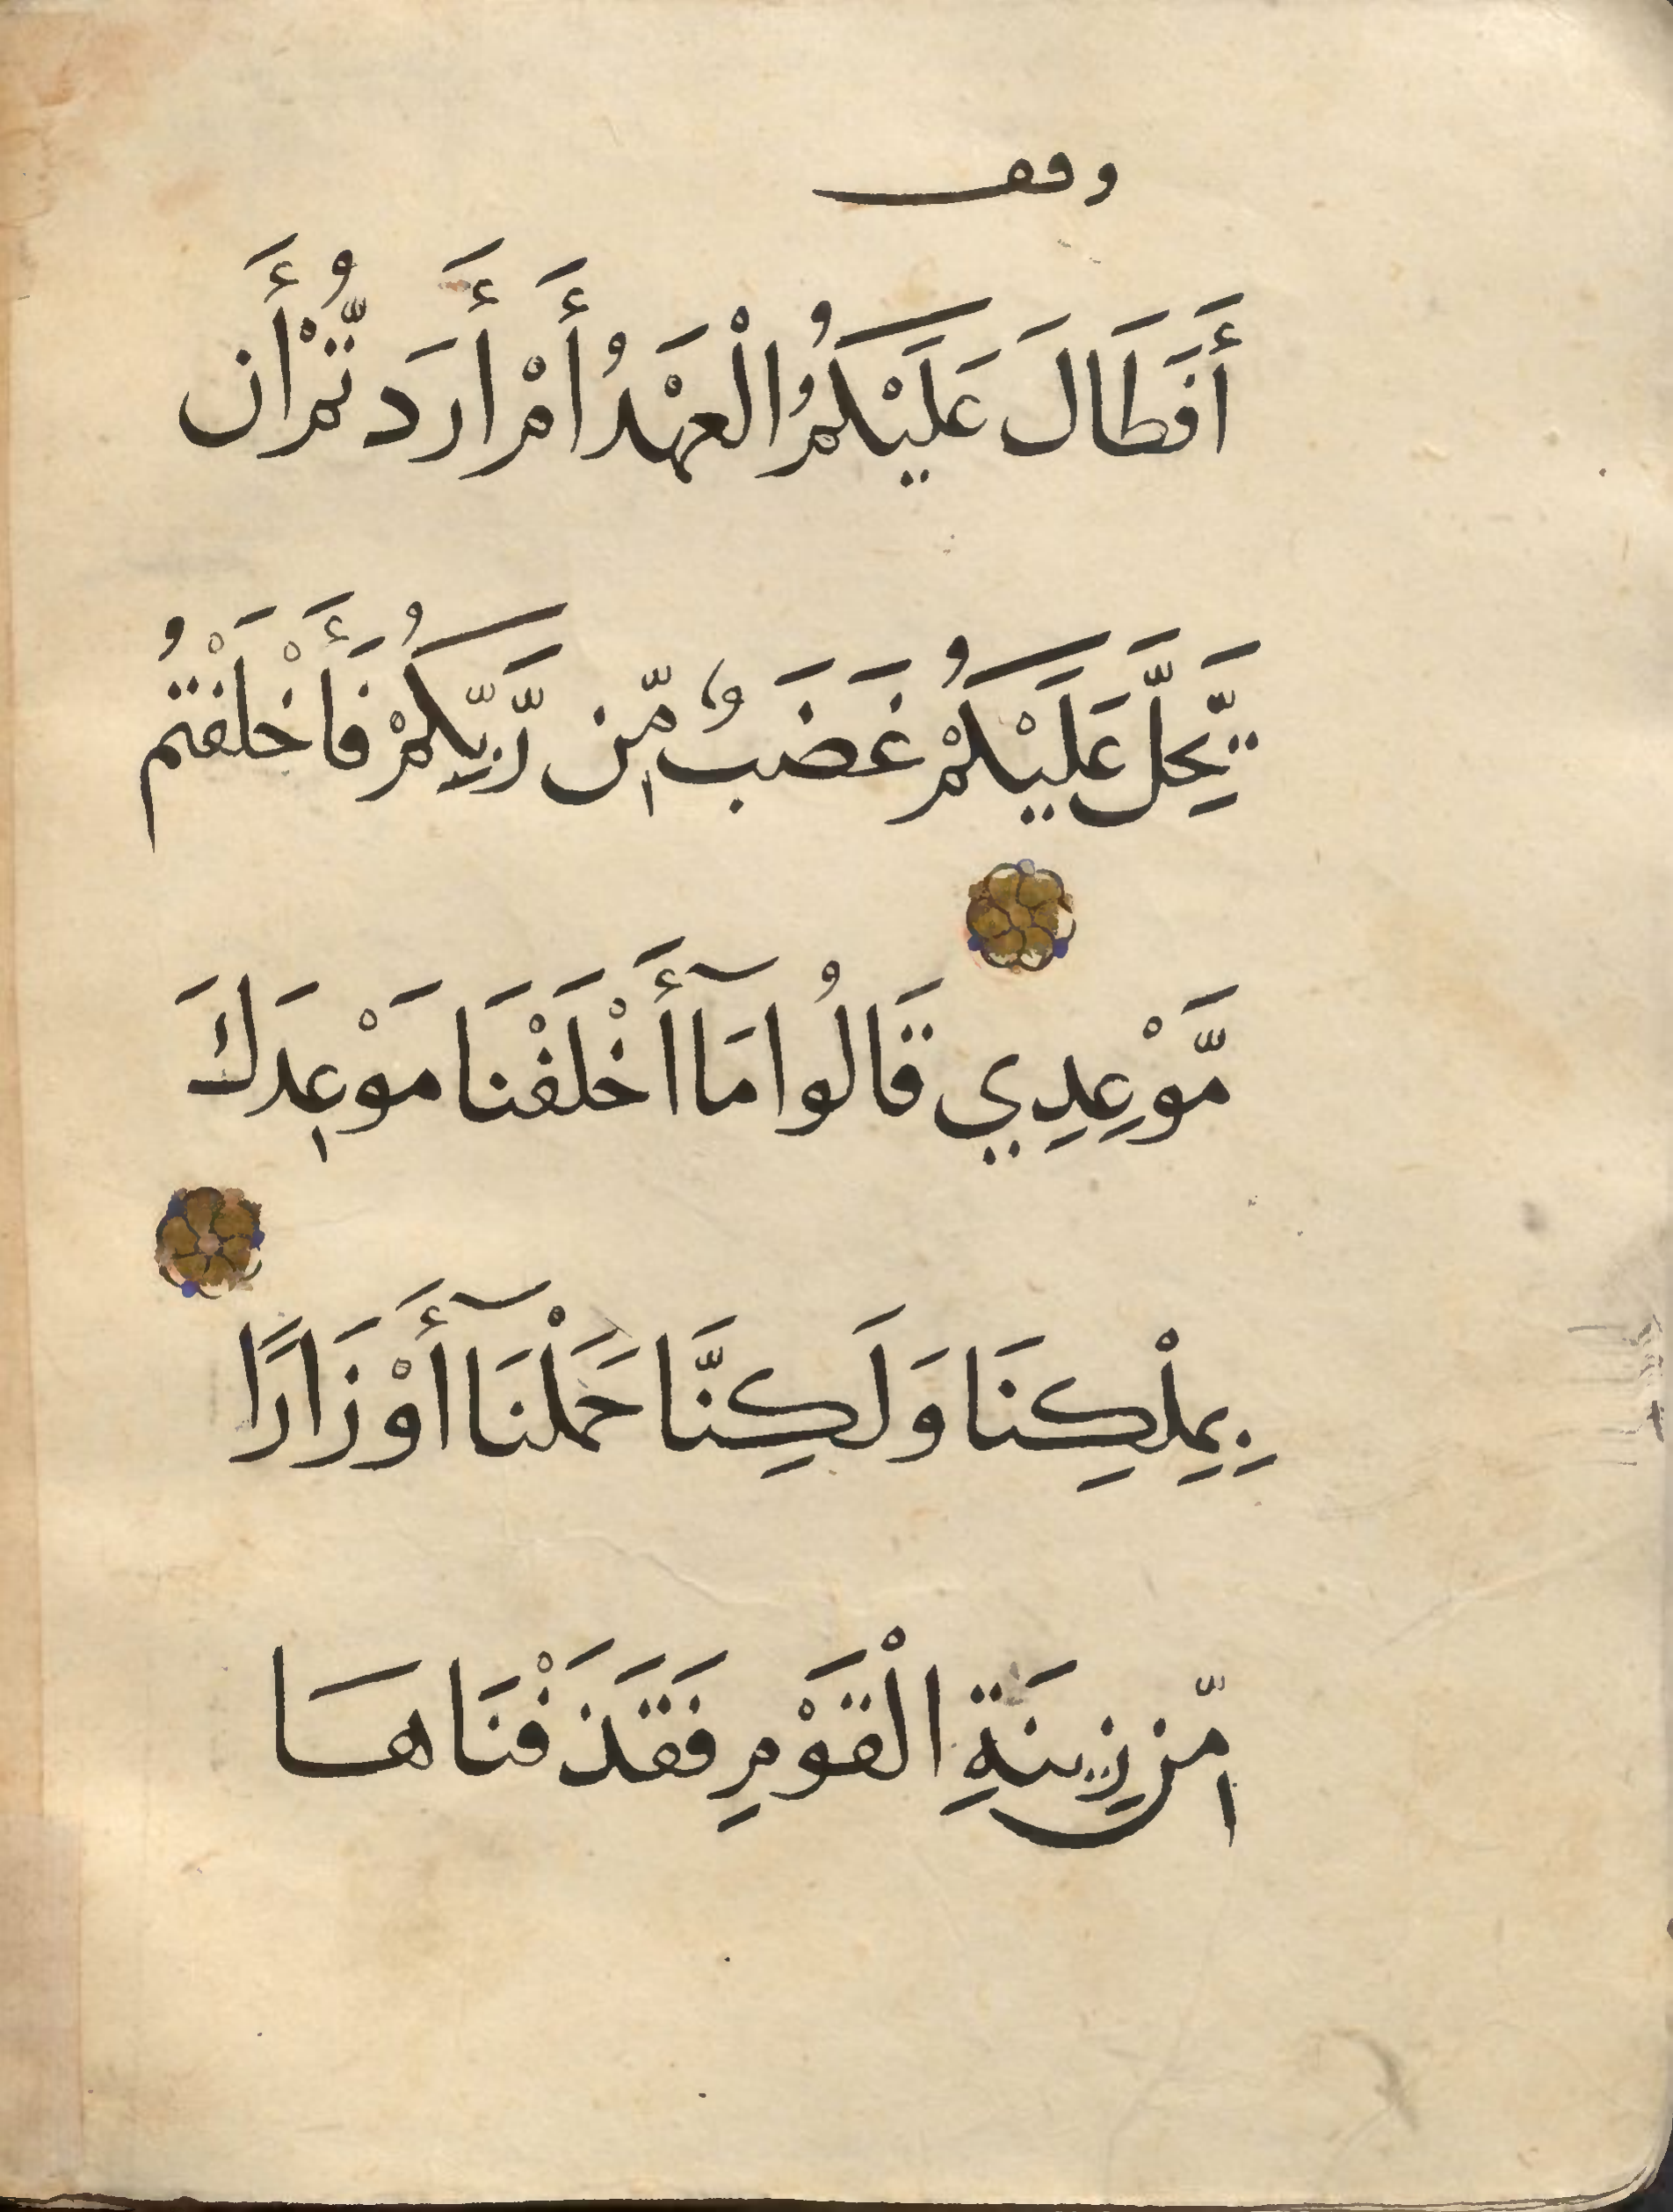 وقف
أَفَطَالَ عَلَيْكُمُ الْعَهْدُ أَمْ أَرَدتُّمْ أَن
يَّحِلَّ عَلَيْكُمْ غَضَبٌ مِّن رَّبِّكُمْ فَأَخْلَفْتُم
مَّوْعِدِي قَالُوا مَآ أَخْلَفْنَا مَوْعِدَكَ
بِمِلْكِنَا وَلَكِنَّا حَمَلْنَآ أَوْزَارًا
مِّن زِينَةِ الْقَوْمِ فَقَذَفْنَاهَا